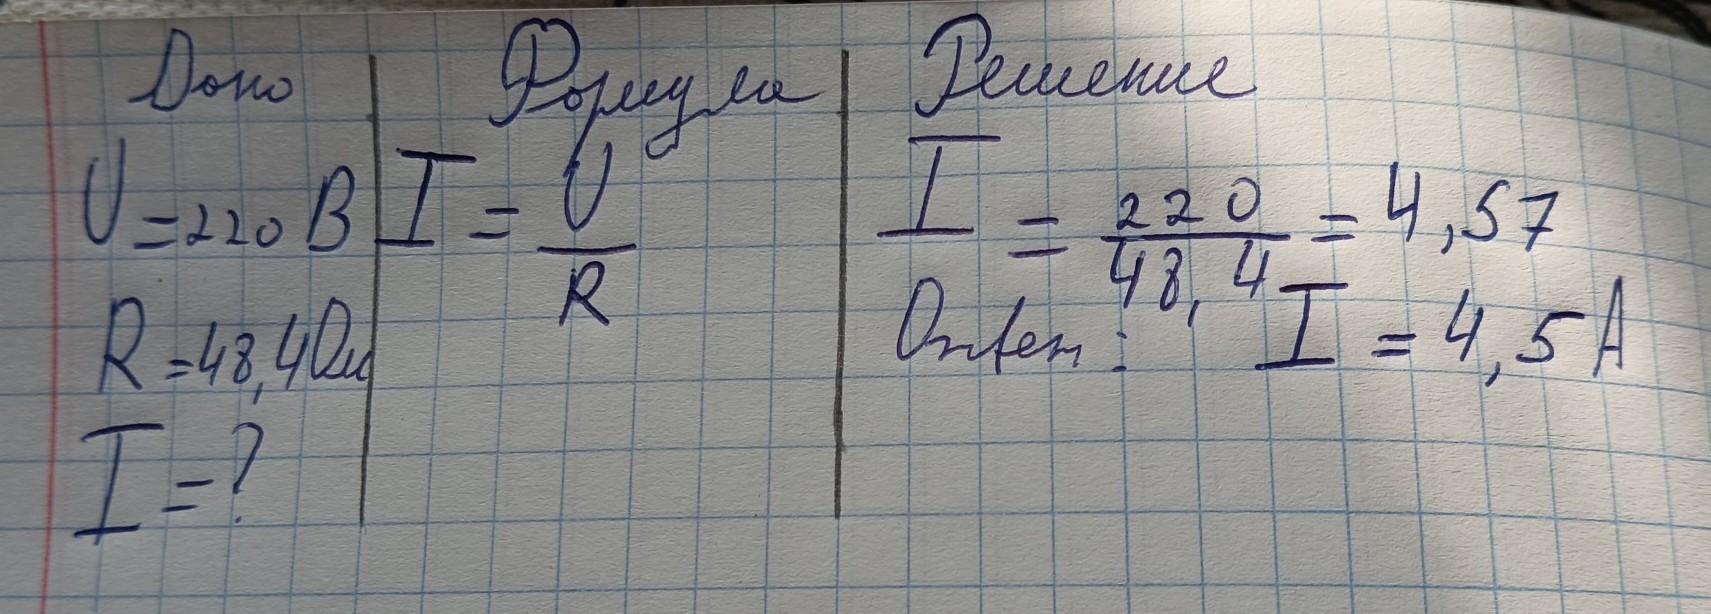 Дано
U = 220 В
R = 48,4 Ом
I = ?
Формула
I = U/R
Решение
I = 220/48,4 = 4,57
Ответ: I = 4,5 А